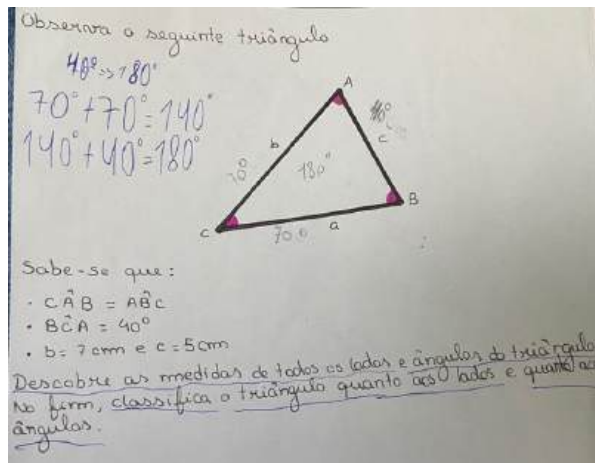 Observa o seguinte triângulo
40º => 180°
70°+70°=140°
140°+40°=180°
A
b
c
70°
180°
B
C
70º
a
Sabe-se que:
· CÂB = AB̂C
· BĈA = 40°
· b = 7 cm e c = 5 cm
Descobre as medidas de todos os lados e ângulos do triângulo
No fim, classifica o triângulo quanto aos lados e quanto ao
ângulos.